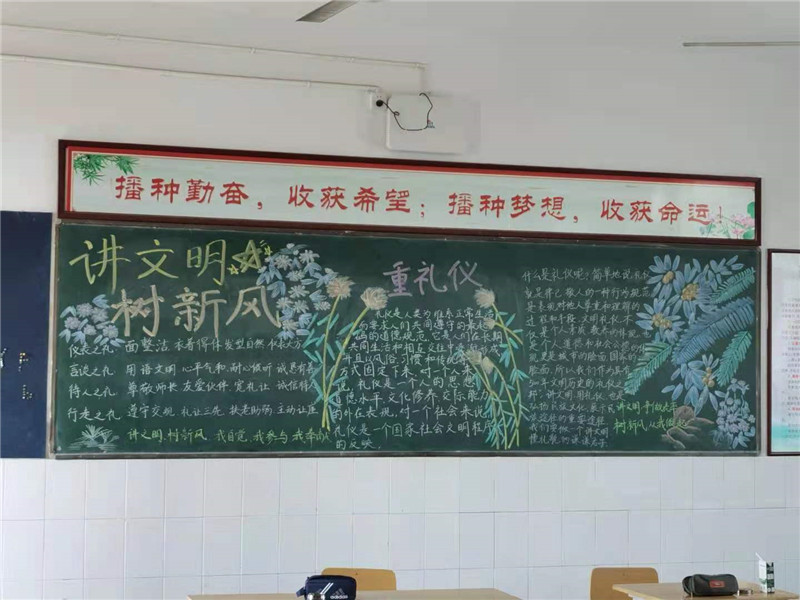 播种勤奋，收获希望；播种梦想，收获命运！
讲文明
树新风
仪表之礼：面整洁 衣着得体 发型自然 仪表大方
言谈之礼 用语文明 心平气和 耐心倾听 诚恳有善
待人之礼 尊敬师长 友爱伙伴 宽礼让 诚信待人
行走之礼 遵守交规 礼让三先 扶老助弱 主动让座
讲文明、树新风 我自觉、我参与 我奉献
重礼仪
礼仪是人类为维系正常生活
而要求人们共同遵守的最起
码的道德规范，它是人们在长期
共同生活和相互交往中形成
并且以风俗、习惯和传统等
方式固定下来，对一个人来
说，礼仪是一个人的思想
道德水平、文化修养、交际能力
的外在表现，对一个社会来说
礼仪是一个国家社会文明程度
的反映。
什么是礼仪呢？简单地说，礼仪
就是律己、敬人的一种行为规范
是表现对他人尊重和理解的
过程和手段。文明礼仪，不
仅是个人素质、教养的体现，
也是个人道德和社会公德的体
现。更是城市的脸面，国家的
脸面。所以，我们作为具有
讲文明、用礼仪，也是
讲文明，于
树新风，从我做起